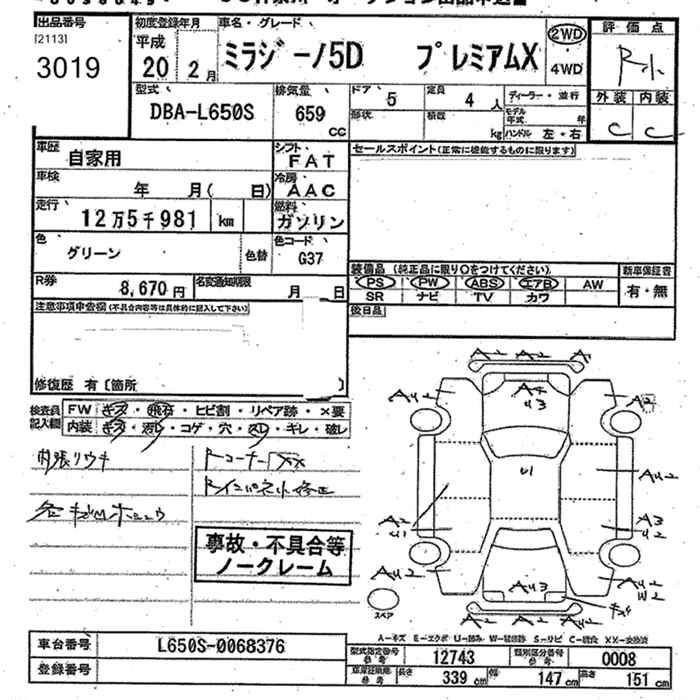 出品番号
[2113]
3019
初度登録年月
平成
20 2月
車名・グレード
ミラジーノ5D プレミアムX
2WD
4WD
評価点
R小
外装 内装
C C
型式
DBA-L650S
排気量
659
CC
ドア 5
定員 4 人
ディーラー・並行
形状
積載 kg
モデル年式 年
ハンドル 左・右
車歴
自家用
シフト
FAT
車検
年 月( 日)
冷房
AAC
走行
12万5千981 km
燃料
ガソリン
色
グリーン
色替
色コード
G37
R券
8,670円
名変通知期限
月 日
セールスポイント(正常に機能するものに限ります)
装備品(純正品に限り○をつけてください)
PS PW ABS エアB AW
SR ナビ TV カワ
新車保証書
有・無
後日品
注意事項申告欄(不具合内容等は具体的に記入して下さい)
修復歴 有〔箇所 〕
検査員記入欄
FW キズ・飛石・ヒビ割・リペア跡・×要
内装 キズ・汚レ・コゲ・穴・スレ・キレ・破レ
内張リウキ
Rコーナー XX
Rインパネ小修正
事故・不具合等
ノークレーム
A2 A2 A
AU2
A4
U3
A2
U1
AU2
A2
U1
A3
U2
AU2
AU3
AU2
W2
A2 AU2 A2
スペア
A-キズ E-エクボ U-凹み W-補修跡 S-サビ C-腐食 XX-交換済
車台番号
L650S-0068376
登録番号
型式指定番号
参考
12743
類別区分番号
参考
0008
車庫証明用
参考
長さ 339 cm 幅 147 cm 高さ 151 cm